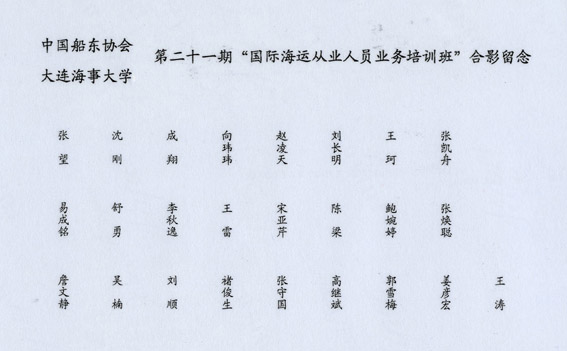 中国船东协会
大连海事大学
第二十一期“国际海运从业人员业务培训班”合影留念
张望 沈刚 成翔 向玮玮 赵凌天 刘长明 王珂 张凯舟
易成铭 舒勇 李秋逸 王雷 宋亚芹 陈梁 鲍婉婷 张焕聪
詹文静 吴楠 刘顺 褚俊生 张守国 高继斌 郭雪梅 姜彦宏 王涛